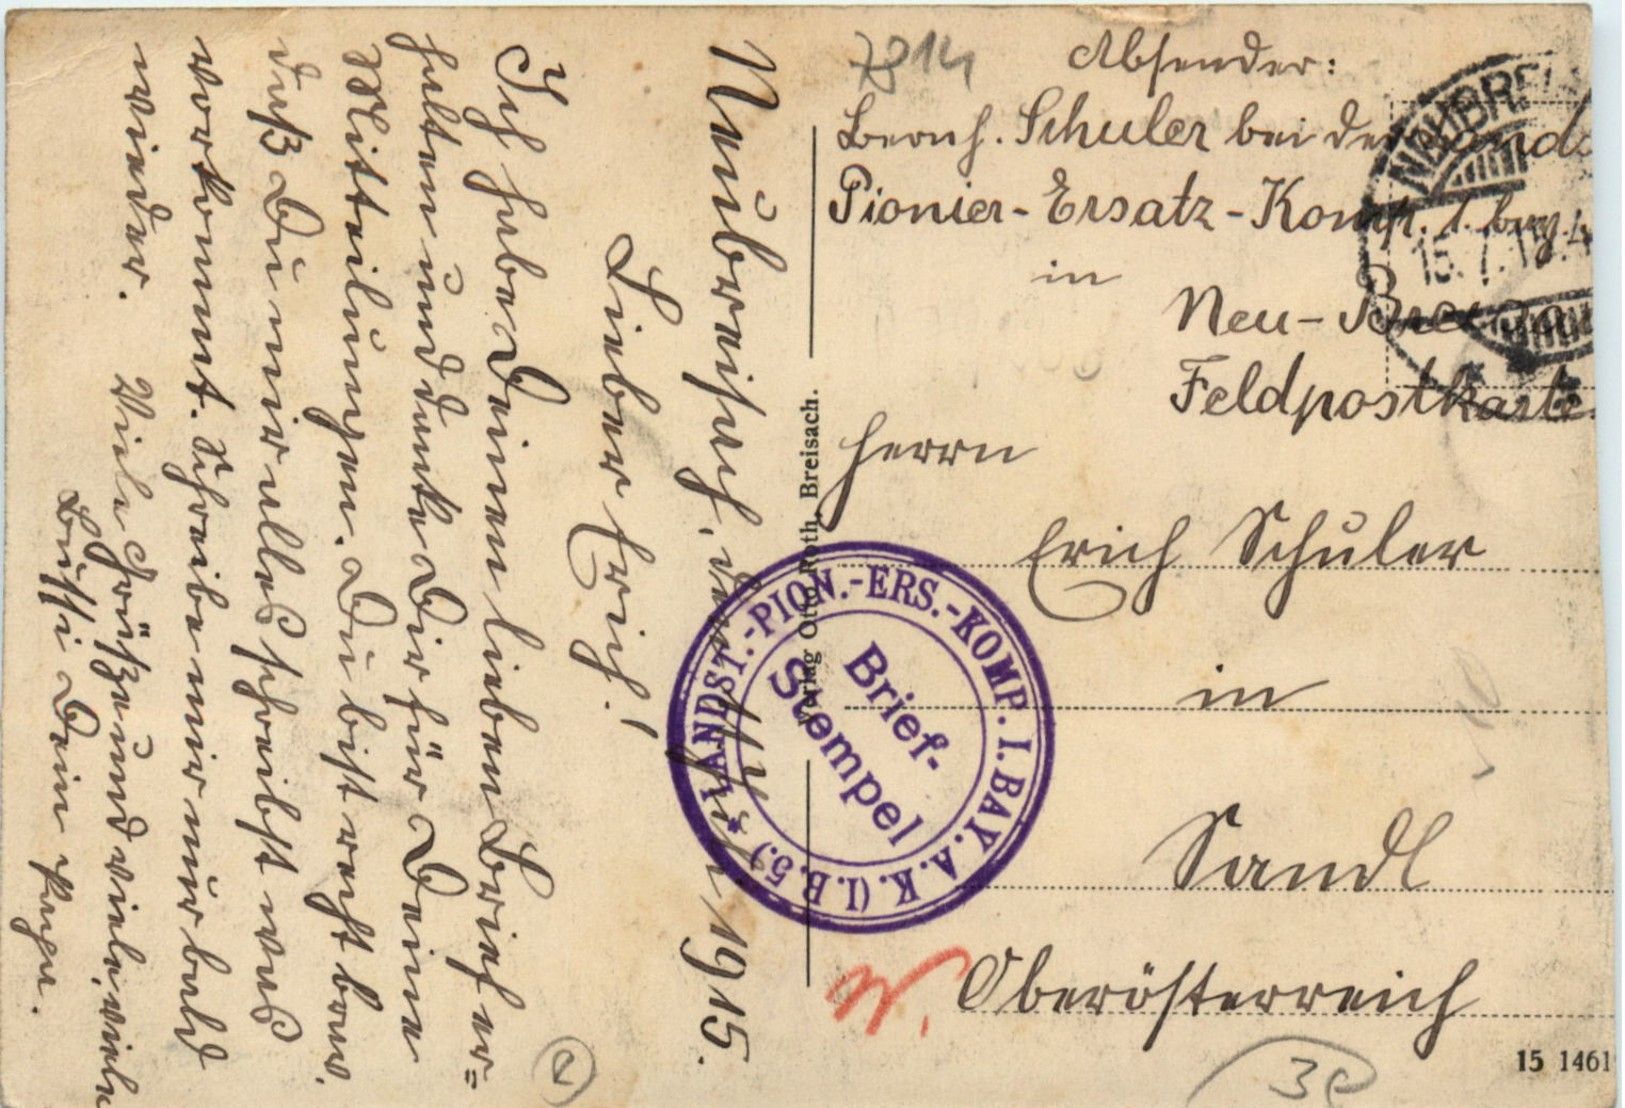 7814
Absender:
Bernh. Schuler bei der Lands
Pionier-Ersatz-Komp. 1. bay.
in
Neu-Breisach
Feldpostkarte
NEUBREI
15.7.15.4
Herrn
Erich Schuler
in
Sandl
Oberösterreich
Verlag Otto Roth, Breisach.
LANDST.-PION.-ERS.-KOMP. I. BAY. A. K. (I.B.5.)
Brief-
Stempel
15 1461
30
Neubreisach, den Juli 1915.
Lieber Erich!
Ich habe Deinen lieben Brief er=
halten und danke Dir für Deine
Mitteilungen. Du bist recht brav,
daß Du mir alles schreibst was
vorkommt. Schreibe mir nur bald
wieder. Viele Grüße und viele, viele
Bussi Dein Papa.